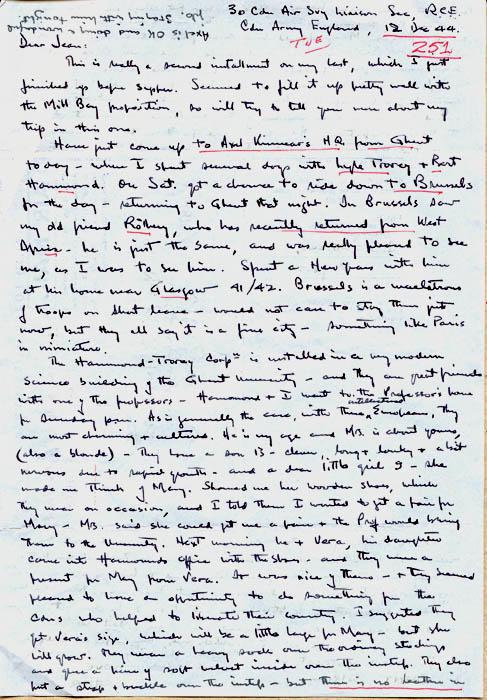 30 Cdn Air Svy Liaison Sec, R.C.E.
Cdn Army England, 12 Dec 44.
TUE
251
Axel is OK and doing a wonderful
job. Staying with him tonight.
Dear Jean:
This is really a second installment on my last, which I just
finished up before supper. Seemed to fill it up pretty well with
the Mill Bay proposition, so will try to tell you more about my
trip in this one.
Have just come up to Axel Kinnear's H.Q. from Ghent
today - where I spent several days with Lyle Trorey + Bert
Hammond. On Sat. got a chance to ride down to Brussels
for the day - returning to Ghent that night. In Brussels saw
my old friend Rothery, who has recently returned from West
Africa - he is just the same, and was really pleased to see
me, as I was to see him. Spent a New Years with him
at his home near Glasgow 41/42. Brussels is a maelstrom
of troops on short leave - would not care to stay there just
now, but they all say it is a fine city - something like Paris
in miniature.
The Hammond-Trorey Corpn is installed in a very modern
Science building of the Ghent University - and they are great friends
with one of the professors - Hammond + I went to the Professor's home
for Sunday p.m. As is generally the case, with these intellectual European, they
are most charming + cultured. He is my age and Mrs. is about yours,
(also a blonde) - They have a son 13 - clever, long + lanky + a bit
nervous due to rapid growth - and a dear little girl 9 - she
made me think of Mary. Showed me her wooden shoes, which
they wear on occasion, and I told them I wanted to get a pair for
Mary - Mrs. said she could get me a pair + the Prof would bring
them to the University. Next morning he + Vera, his daughter
came into Hammonds office with the shoes - and they were a
present for Mary from Vera. It was nice of them - + they seemed
pleased to have an opportunity to do something for the
Cdns who helped to liberate their country. I suggested they
get Vera's size, which will be a little large for Mary - but she
will grow. They wear a heavy sock over the ordinary stockings
and glue a piece of soft velvet inside over the instep. They also
put a strap + buckle over the instep - but there is no leather in